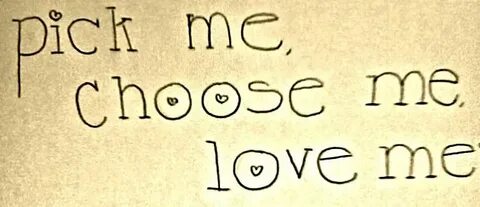 pick me,
choose me,
love me